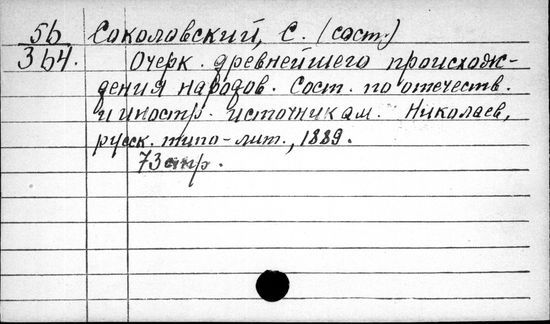 56 Соколовский, С. (сост.)
364. Очерк древнейшего происхож-
дения народов. Сост. по отечеств.
и иностр. источникам. Николаев,
русск. типо-лит., 1889.
73 стр.